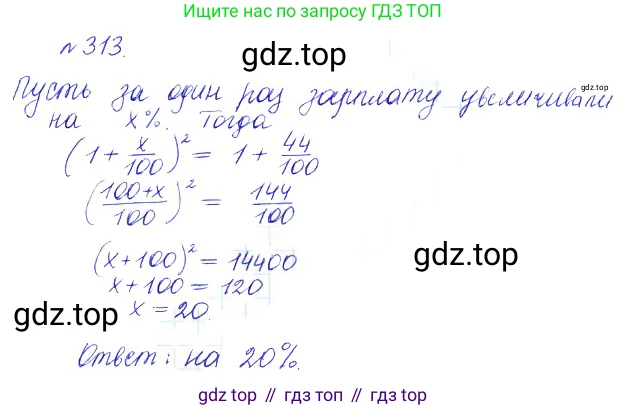 Ищите нас по запросу ГДЗ ТОП
№ 313.
gdz.top
Пусть за один раз зарплату увеличивали
gdz.top
на x%. Тогда
(1 + x/100)² = 1 + 44/100
((100+x)/100)² = 144/100
(x+100)² = 14400
gdz.top
x + 100 = 120
x = 20.
gdz.top
Ответ: на 20%.
gdz top // гдз топ // гдз top